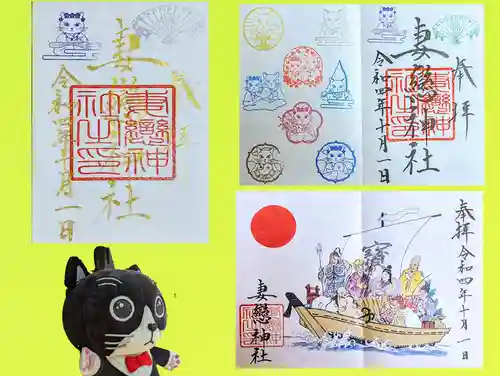 奉拝
妻戀神社
令和四年十月一日
妻戀神
社之印
奉拝
妻戀神社
令和四年十月一日
妻戀神
社之印
奉拝 令和四年十月一日
寶
妻戀神社